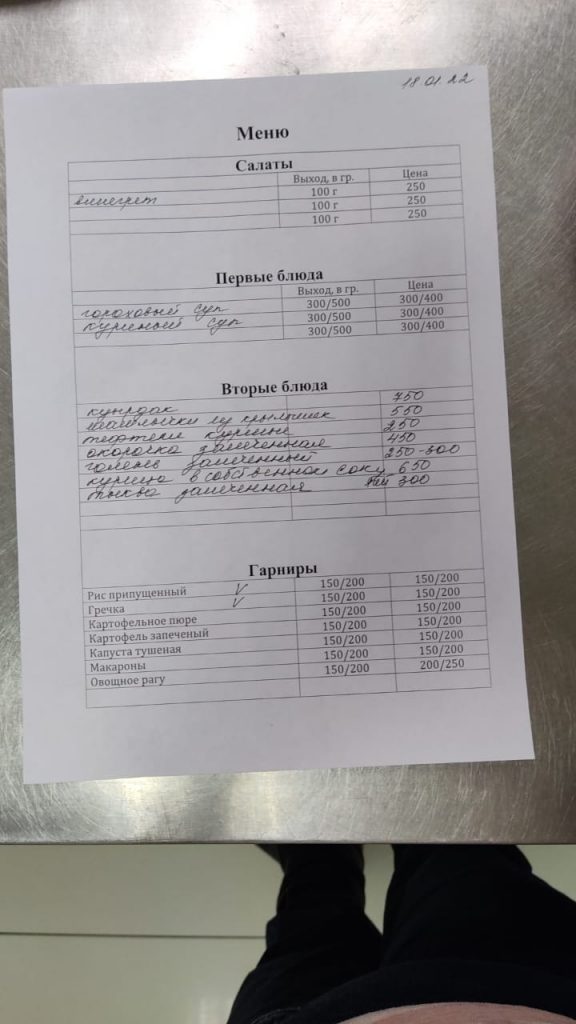 18.01.22
Меню
Салаты
Выход, в гр. Цена
винегрет 100 г 250
100 г 250
100 г 250
Первые блюда
Выход, в гр. Цена
гороховый суп 300/500 300/400
куриный суп 300/500 300/400
300/500 300/400
Вторые блюда
куырдак 750
шашлычки из крылышек 550
тефтели куриные 250
окорочка запеченная 450
голень запеченный 250-300
курица в собственном соку 650
тыква запеченная 300
Гарниры
Рис припущенный V 150/200 150/200
Гречка V 150/200 150/200
Картофельное пюре 150/200 150/200
Картофель запеченый 150/200 150/200
Капуста тушеная 150/200 150/200
Макароны 150/200 150/200
Овощное рагу 150/200 200/250